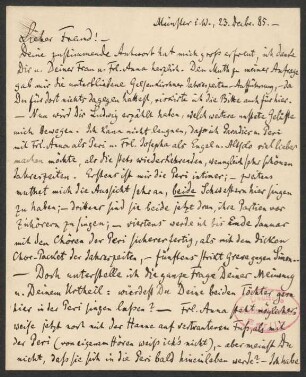 Münster i. W., 23. Decbr. 85. –
Lieber Freund! –
Deine zustimmende Antwort hat mich sehr erfreut, ich danke
Dir u. Deiner Frau u. Frl. Anna herzlich. Den Muth zu meiner Anfrage
gab mir die unterbliebene Gelsenkirchner Jahreszeiten-Aufführung, – da
Du für dort nichts dagegen hattest, wirkte ich die Bitte auch für hier. –
– Nun wird Dir Ludwig erzählt haben, welch weitere Gelüste
mich bewegen. Ich kann nicht leugnen, daß ich Paradies u. Peri
mit Frl. Anna als Peri u. Frl. Josepha als Engel u. Altsolo viel lieber
machen möchte, als die stets wiederkehrenden, wenngleich sehr schönen
Jahreszeiten. Erstens ist mir die Peri intimer; – zweitens
muthet mich die Aussicht sehr an, beide Schwestern hier singen
zu haben; – drittens sind sie beide jetzt dran, ihre Partien vor
Zuhörern zu singen; – viertens werde ich bis Ende Januar
mit den Chören der Peri sicherer fertig, als mit dem dicken
Chor-Packet der Jahreszeiten, – fünftens
– Doch unterstelle ich die ganze Frage Deiner Meinung
u. Deinem Urtheil: würdest Du Deine beiden Töchter gern
hier in der Peri singen lassen? – Frl. Anna steht möglicher
weise jetzt noch mit der Hanne auf vertrauterem Fuß, als mit
der Peri (von eigenem Hören weiß ich's nicht), – aber meinst Du
nicht, daß sie sich in die Peri bald hineinleben werde? – Ich habe